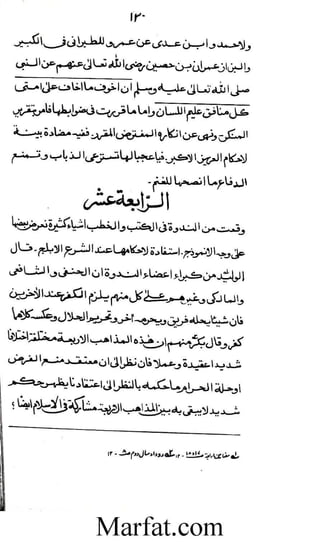 ١٣٠
ولاحمد و ابن عدى عن عمر و للطبرانى فى الكبير
والبزاز عمران بن حصين رضى الله تعالى عنهم عن النبى
صلى الله تعالى عليه وسلم ان اخوف ما اخاف على امتى
كل منافق عليم اللسان واما ما قررت فى ضوابطها فامر بقربى
المنكر ونهى عن انكاره المفترض المقرر ففيه مضادة بينة
لاحكام العزيز الاكبر فيا عجبا لها تسترعى الذباب وتمنع
الدفاع ما انصحها للغنم۔
الرابعة عشر
وقعت من الندوة فى الكتب والخطب اشياء كثيرة نعرض بعضها
على وجه الانموذج استفادة لاحكامها عند الشرع الابلج۔ قال
الواحد من كبراء اعضاء الندوة ان الحنفى والشافى
والمالكى وغيرهم على كل منهم يلزم الكفر عند الآخرين
فان شيئا يحله فريق ويحرمه آخر وتحريم الحلال وعكسه كلاهما
كفر وقال بكر منهم ان هذه المذاهب الاربعة مختلفة اختلافا
شديدا عقيدة وعملا فان نظر الى ان معتقد منع الفرض
او حلة الحرام ما حكمه بالنظر الى اعتقادنا يظهر حكم
شديد لا يبقى به بين المذاهب الاربعة مشاركة فى الاسلام ايضا؛
روداد سال دوم
Marfat.com